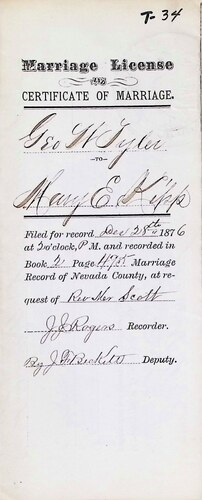 T-34
Marriage License
AND
CERTIFICATE OF MARRIAGE.
Geo W Tyler
—TO—
Mary E. Kipp
Filed for record Dec 28th 1876
at 2 o'clock, P. M. and recorded in
Book 2 Page 475 Marriage
Record of Nevada County, at re-
quest of Rev Mer Scott
J. J. Rogers Recorder.
By J. F. Beckett Deputy.